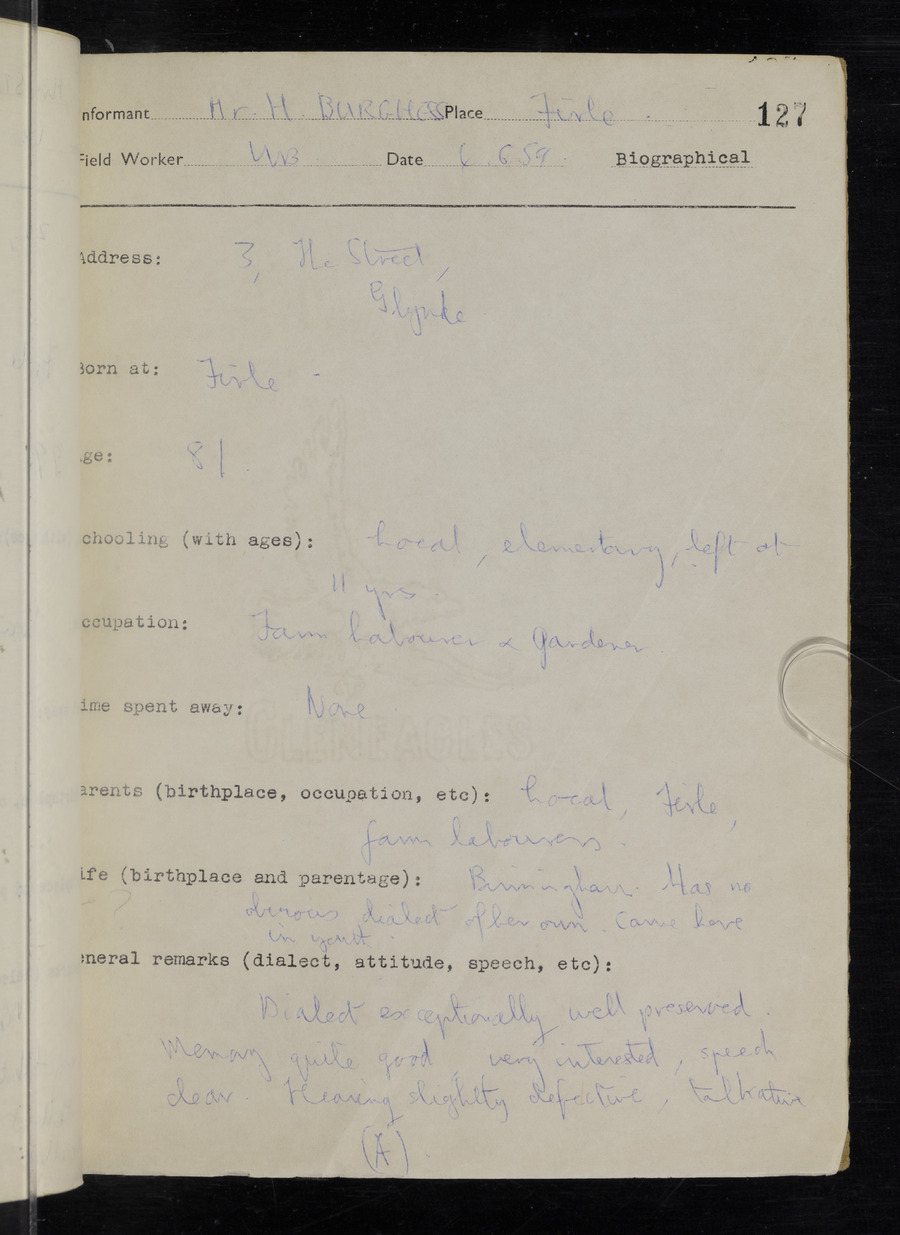 nformant Mr. H. BURGHESS Place Firle 127
Field Worker WB Date 6.6.59. Biographical
Address: 3, The Street,
Glynde
Born at: Firle -
ge: 81.
chooling (with ages): Local, elementary, left at
11 yrs.
ccupation: Farm labourer & Gardener.
ime spent away: None.
GLENEAGLES
arents (birthplace, occupation, etc): Local, Firle,
farm labourers.
ife (birthplace and parentage): Birmingham. Has no
obvious dialect of her own. Came here
in youth.
eneral remarks (dialect, attitude, speech, etc):
Dialect exceptionally well preserved.
Memory quite good, very interested, speech
clear. Hearing slightly defective, talkative
(A).